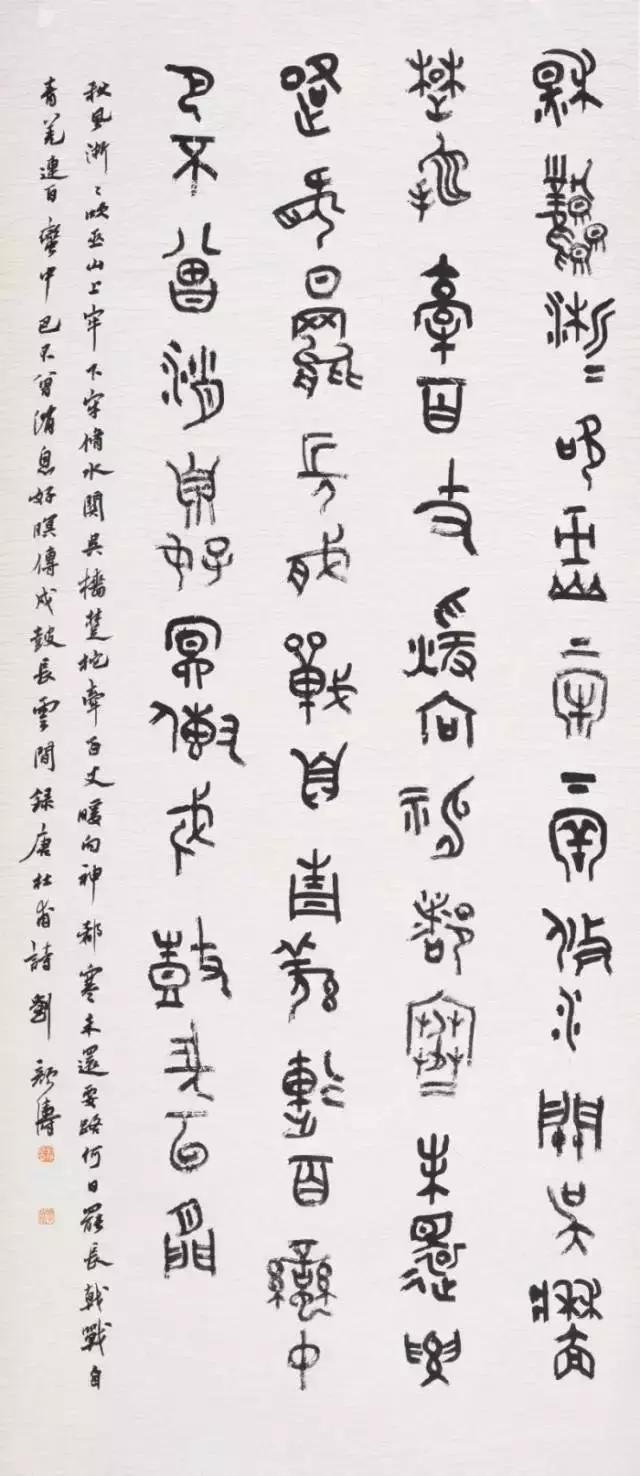 秋風淅〻吹巫山上牢下牢脩水關吳檣
楚柁牽百丈暖向神都寒未還要
路何日罷長戟戰自青羌連百蠻中
巴不曾消息好暝傳戍鼓長雲間
秋風淅〻吹巫山上牢下牢脩水關吳檣楚柁牽百丈暖向神都寒未還要路何日罷長戟戰自
青羌連百蠻中巴不曾消息好暝傳戍鼓長雲間録唐杜甫詩劉顏濤